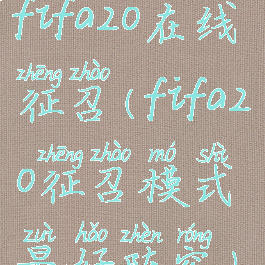 fifa20在线
zhēng zhào
征召(fifa2
zhēng zhào mó shì
0征召模式
zuì hǎo zhèn róng
最好阵容)